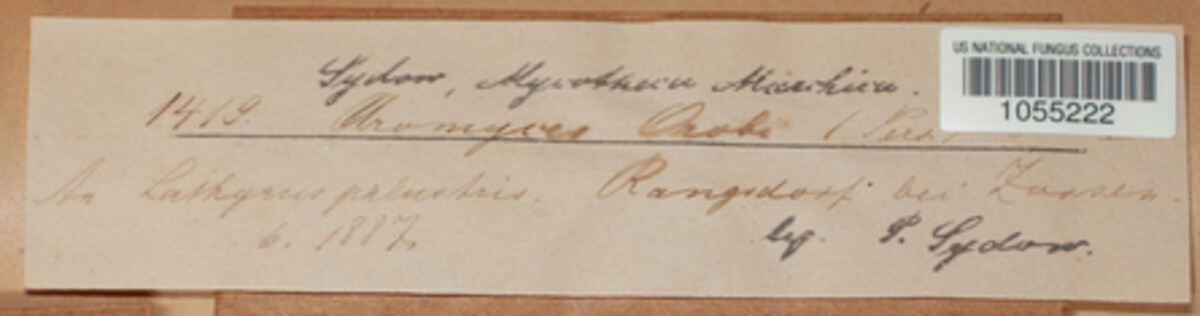 Sydow, Mycotheca Marchica.
1419. Uromyces Orobi (Pers.)
An Lathyrus palustris. Rangsdorf bei Zossen.
6. 1887.
leg. P. Sydow.
US NATIONAL FUNGUS COLLECTIONS
1055222